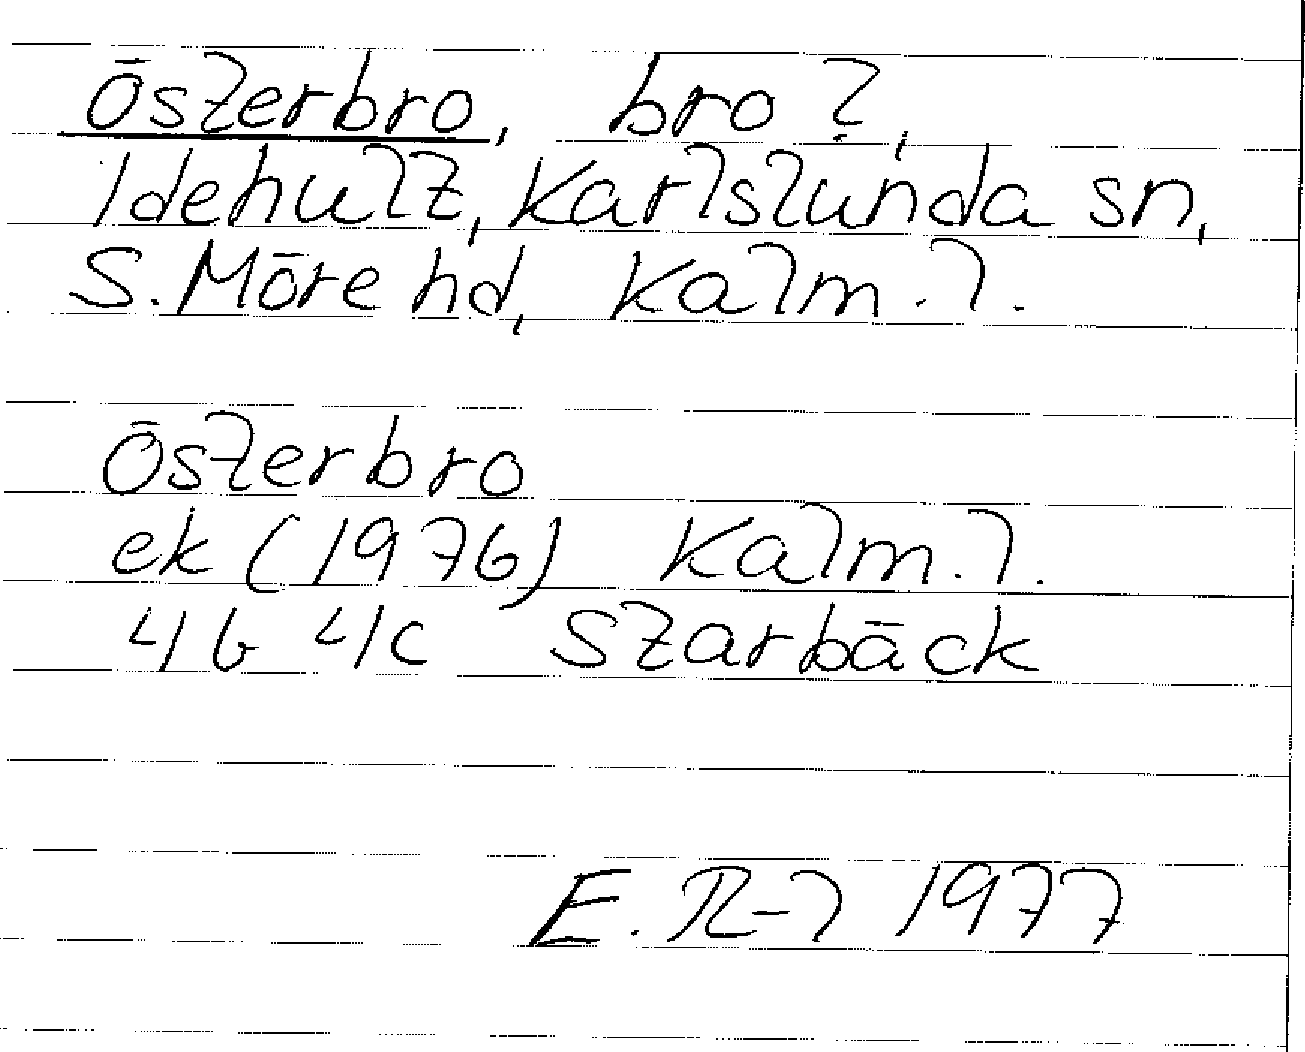 Österbro, bro?,
Idehult, Karlslunda sn,
S. Möre hd, Kalm. l.
Österbro
ek (1976) Kalm. l.
4G 4c Starbäck
E. R-l 1977